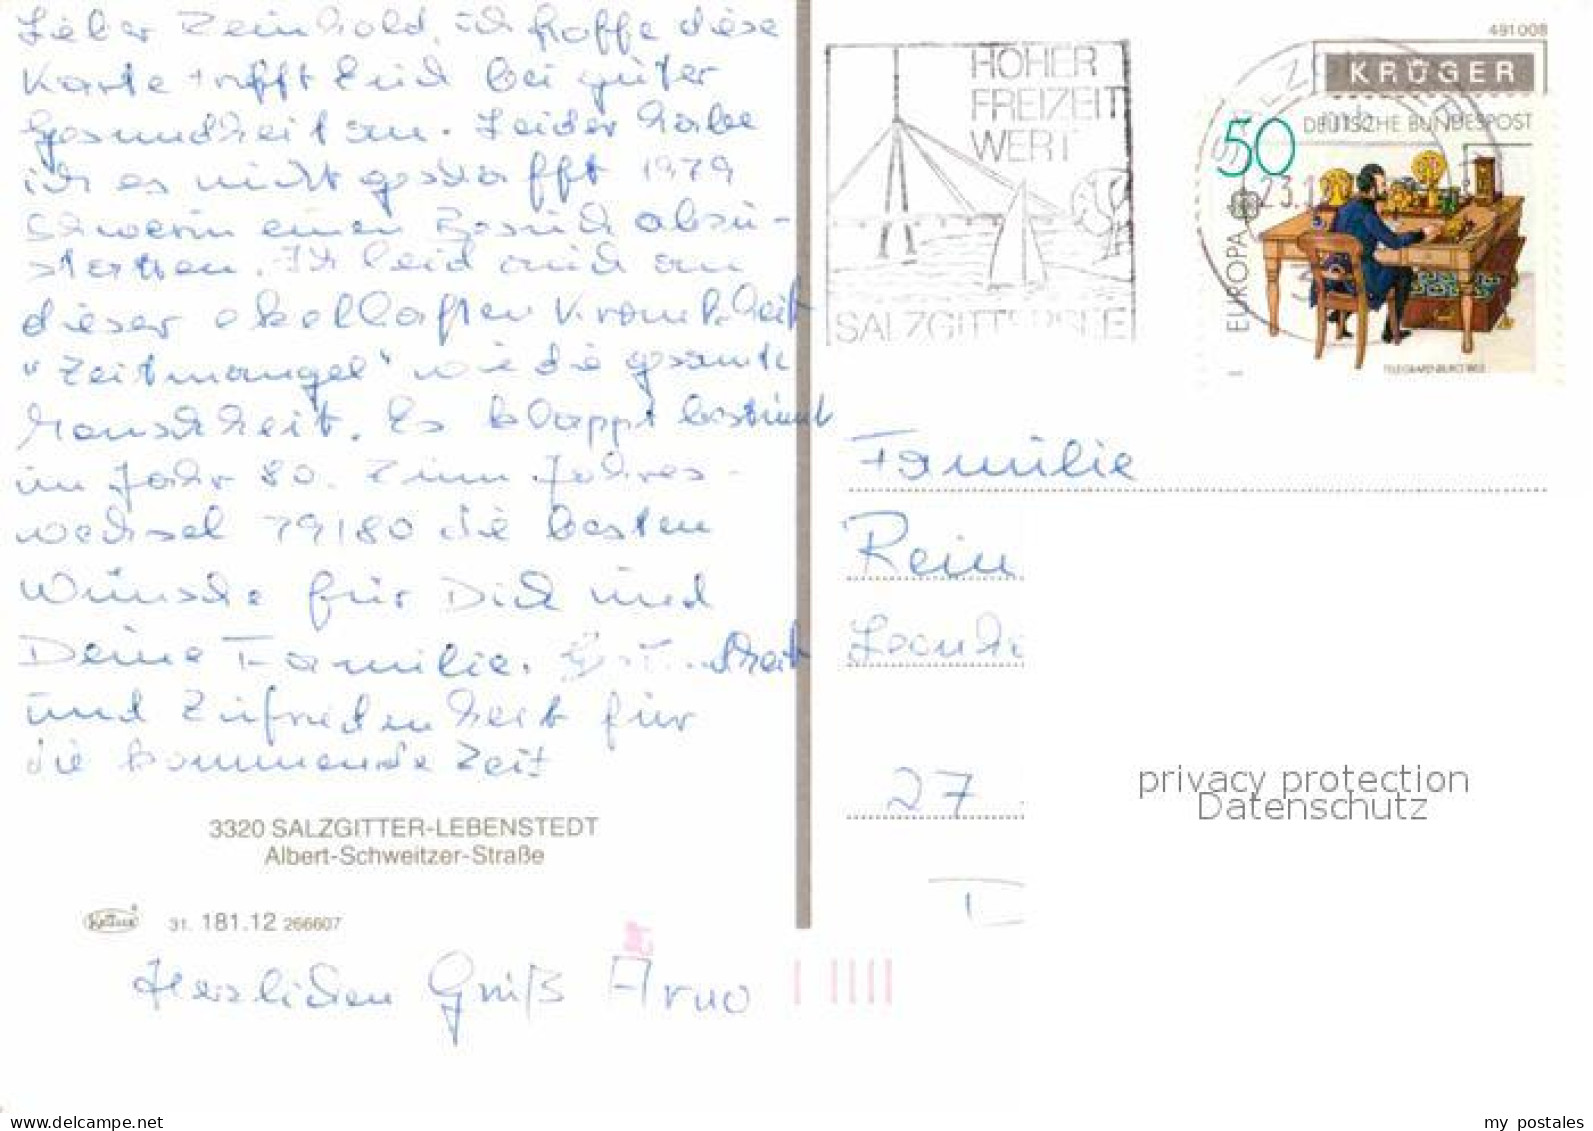 Lieber Reinhold, ich hoffe diese
Karte trifft Euch bei guter
Gesundheit an. Leider habe
ich es nicht geschafft 1979
Schwerin einen Besuch abzu-
statten. Ich leid auch an
dieser ekelhaften Krankheit
"Zeitmangel" wie die gesamte
Menschheit. Es klappt bestimmt
im Jahr 80. Zum Jahres-
wechsel 79/80 die besten
Wünsche für Dich und
Deine Familie.
und Zufriedenheit für
die kommende Zeit
3320 SALZGITTER-LEBENSTEDT
Albert-Schweitzer-Straße
Krüger
31. 181.12 266607
Herzlichen Gruß Arno
HOHER
FREIZEIT
WERT
SALZGITTERSEE
491008
KRÜGER
50 DEUTSCHE BUNDESPOST
EUROPA
TELEGRAFENBÜRO 1863
Familie
Rein
27
privacy protection
Datenschutz
my_postales